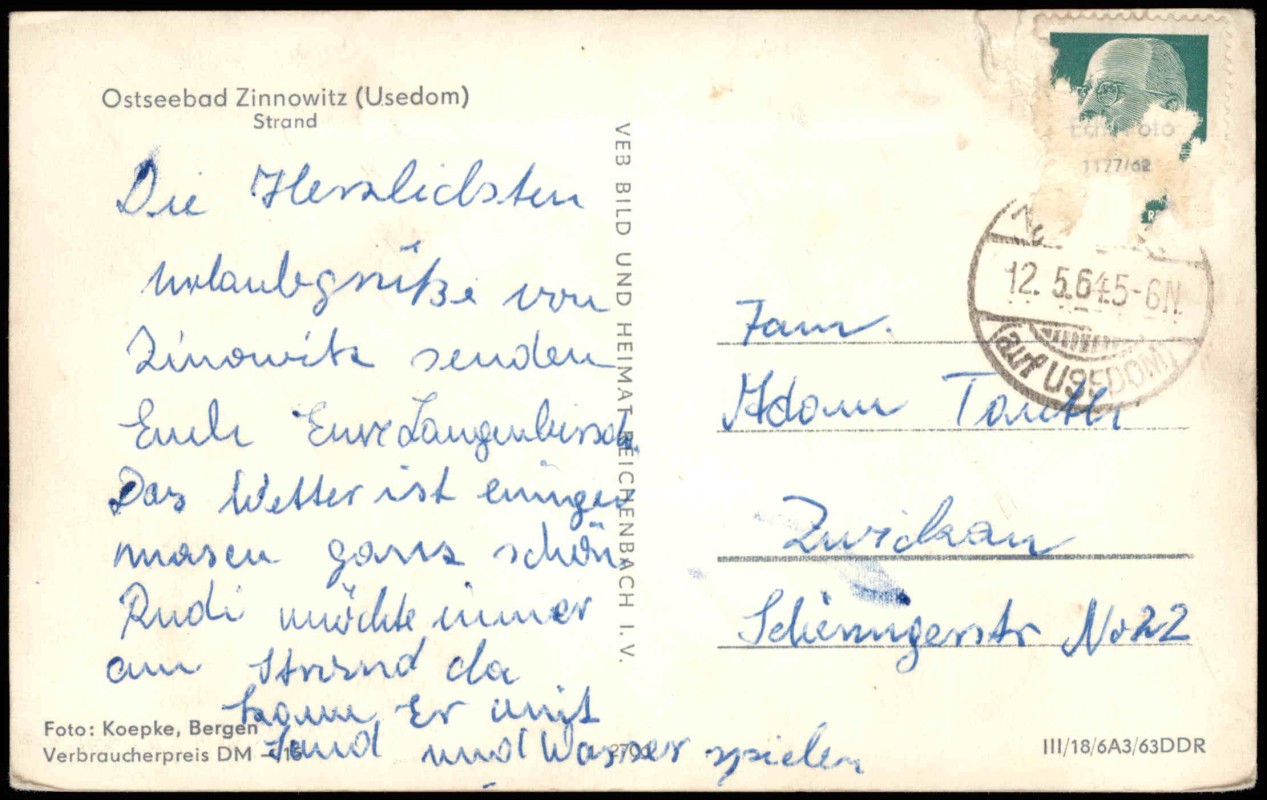 Ostseebad Zinnowitz (Usedom)
Strand
Die Herzlichsten
Urlaubgrüße von
Zinowitz senden
Euch Eure
Das Wetter ist einiger
masen ganz schön
Rudi möchte immer
am Strand da
kann Er mit
Sand und Wasser spielen
Foto: Koepke, Bergen
Verbraucherpreis DM -,15
VEB BILD UND HEIMAT REICHENBACH I. V.
Echt Foto
1177/62
12.5.64.5-6N
auf USEDOM
Fam.
Adam
Zwickau
No 22
III/18/6A3/63DDR